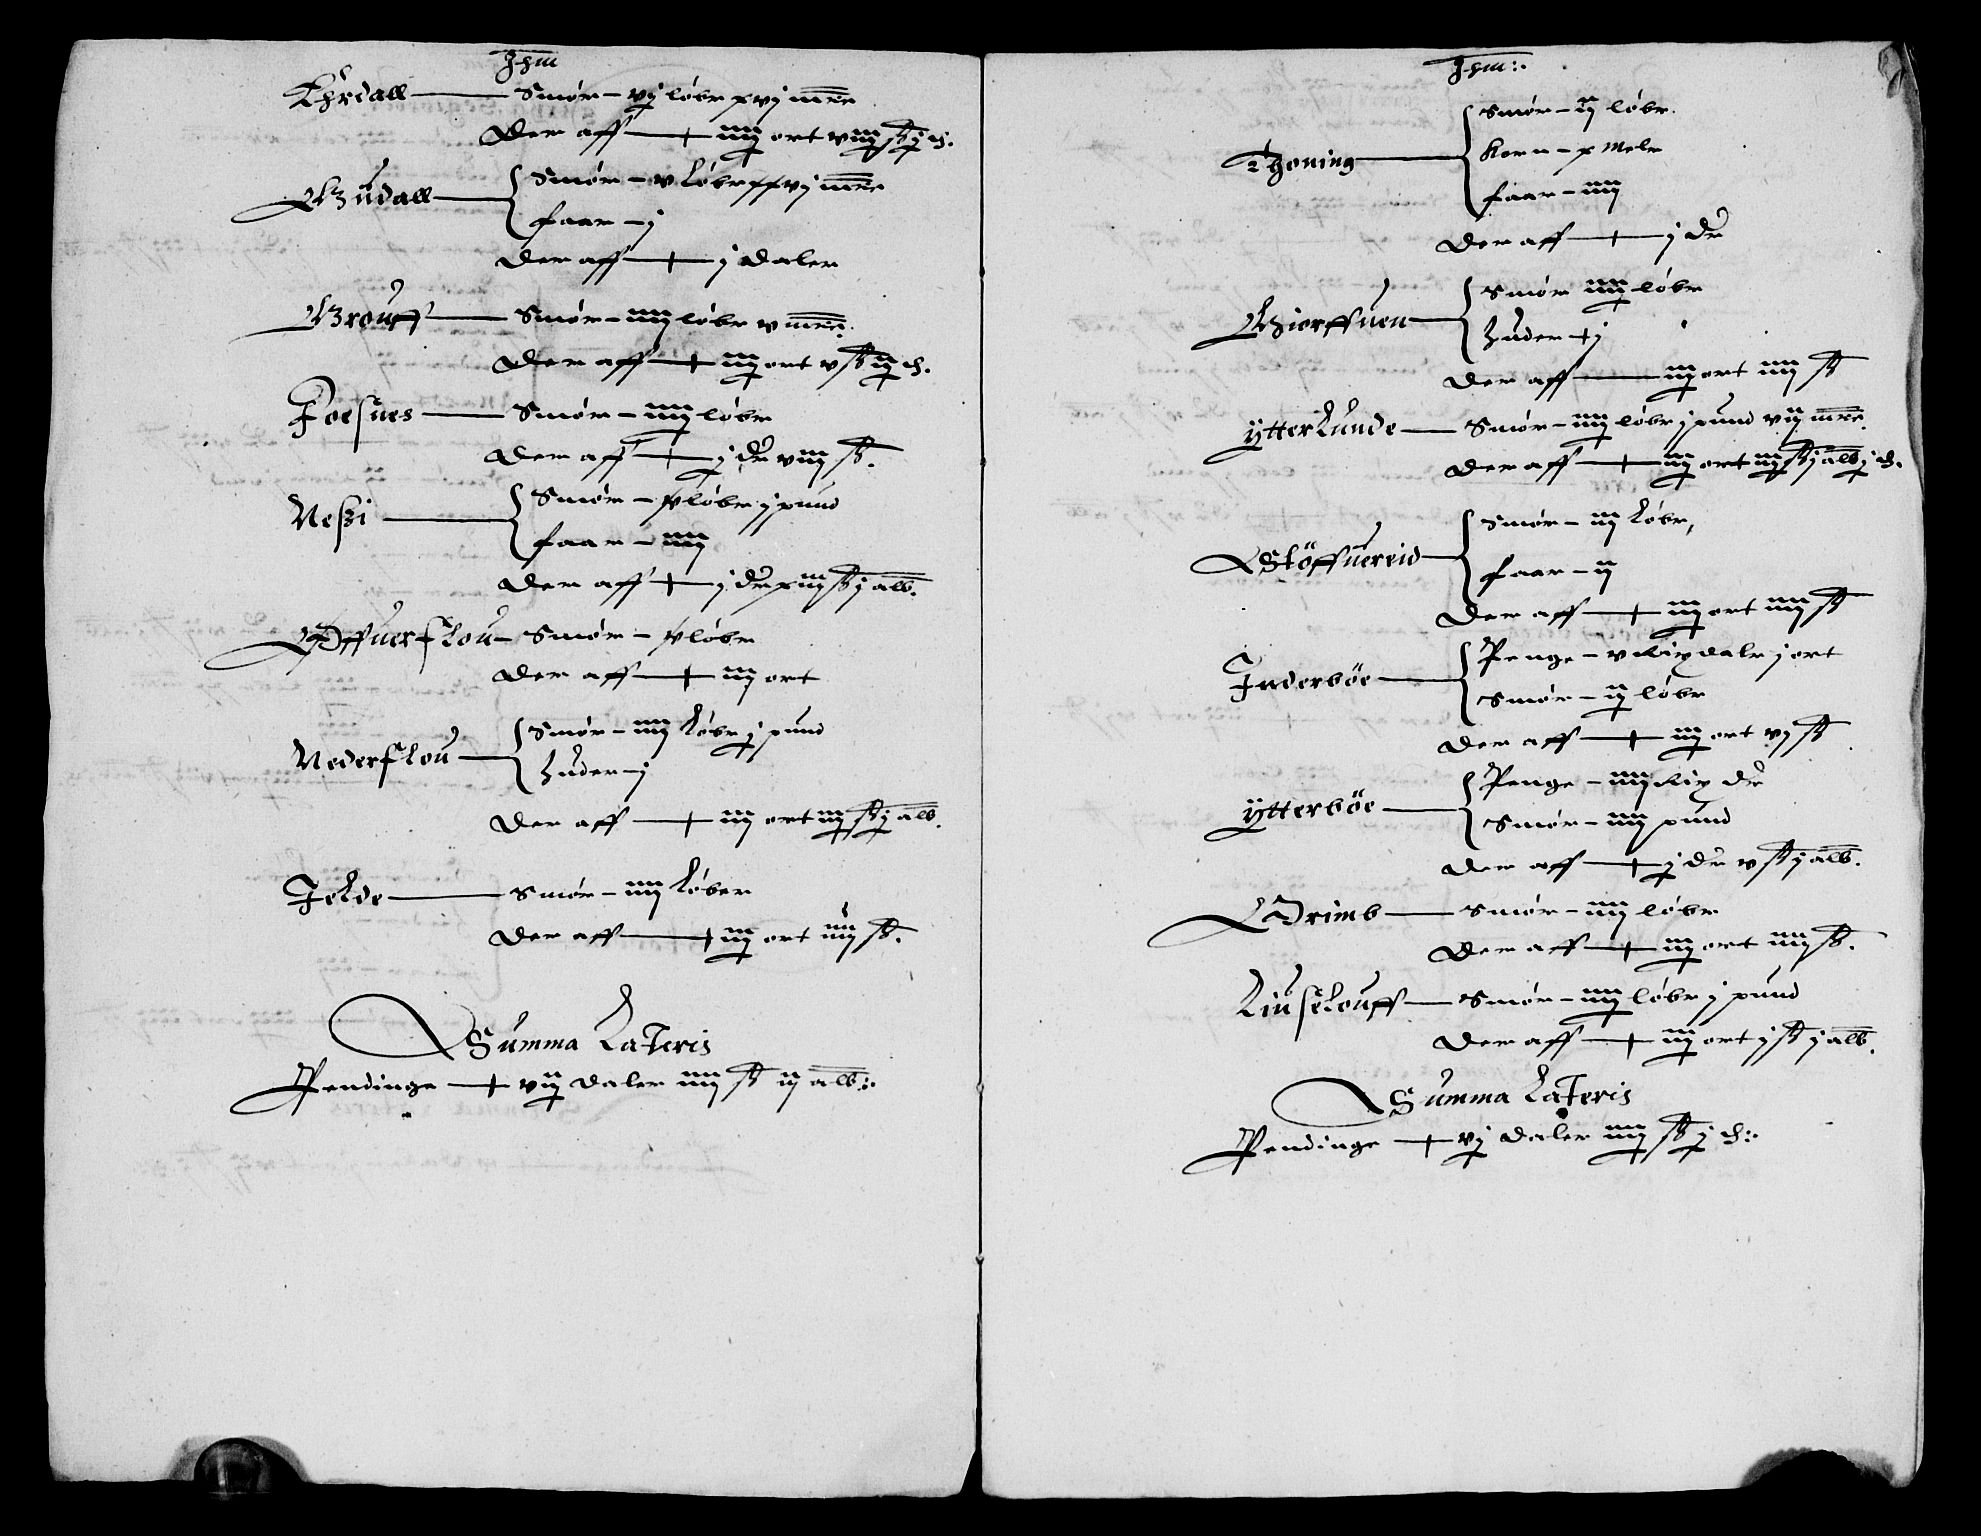 Jhm
Kyrdall — Smör – vj löbr xvj mrr
Der aff — iiij ort viij ß j ch.
Gudall — Smör – v löbr xxvj mrr
faar – j
Der aff — j daler
Grouff — Smör – iiij löbr v mrr.
Der aff — iij ort v ß ij ch.
Foesnes — Smör – iiij löbr
Der aff — j dr viij ß.
Neszi — Smör – v löbr j pund
faar – iiij
Der aff — j dr xiij ß j alb.
Offuerflou – Smör – v löbr
Der aff — iiij ort
Nederflou — Smör – iiij löbr j pund
huder – j
Der aff — iiij ort iij ß j alb.
Jelde — Smör – iiij löber
Der aff — iij ort iiij ß.
Summa Lateris
Pendinge — vij daler iiij ß ij alb:.
Jhm:.
Thoning — Smör – ij löbr.
Korn – x Melr
faar – iiij
Der aff — j dr
Biorffuen — Smör iiij löbr
huder – j
Der aff — iij ort iiij ß
Ytterlunde — Smör – iiij löbr j pund vij mrr.
Der aff — iij ort iij ß j alb j ch.
Stöffuereid — Smör – iij löbr,
faar – ij
Der aff — iij ort iiij ß
Inderböe — Penge – v Rixdalr j ort
Smör – ij löbr
Der aff — iij ort vj ß
Ytterböe — Penge – iiij Rix dr
Smör – iiij pund
Der aff — j dr v ß j alb.
Drimb — Smör – iiij löbr
Der aff — iij ort iiij ß.
Liuselouff — Smör – iiij löbr j pund
Der aff — iij ort j ß j alb.
Summa Lateris
Pendinge — vj daler iiij ß j ch:.